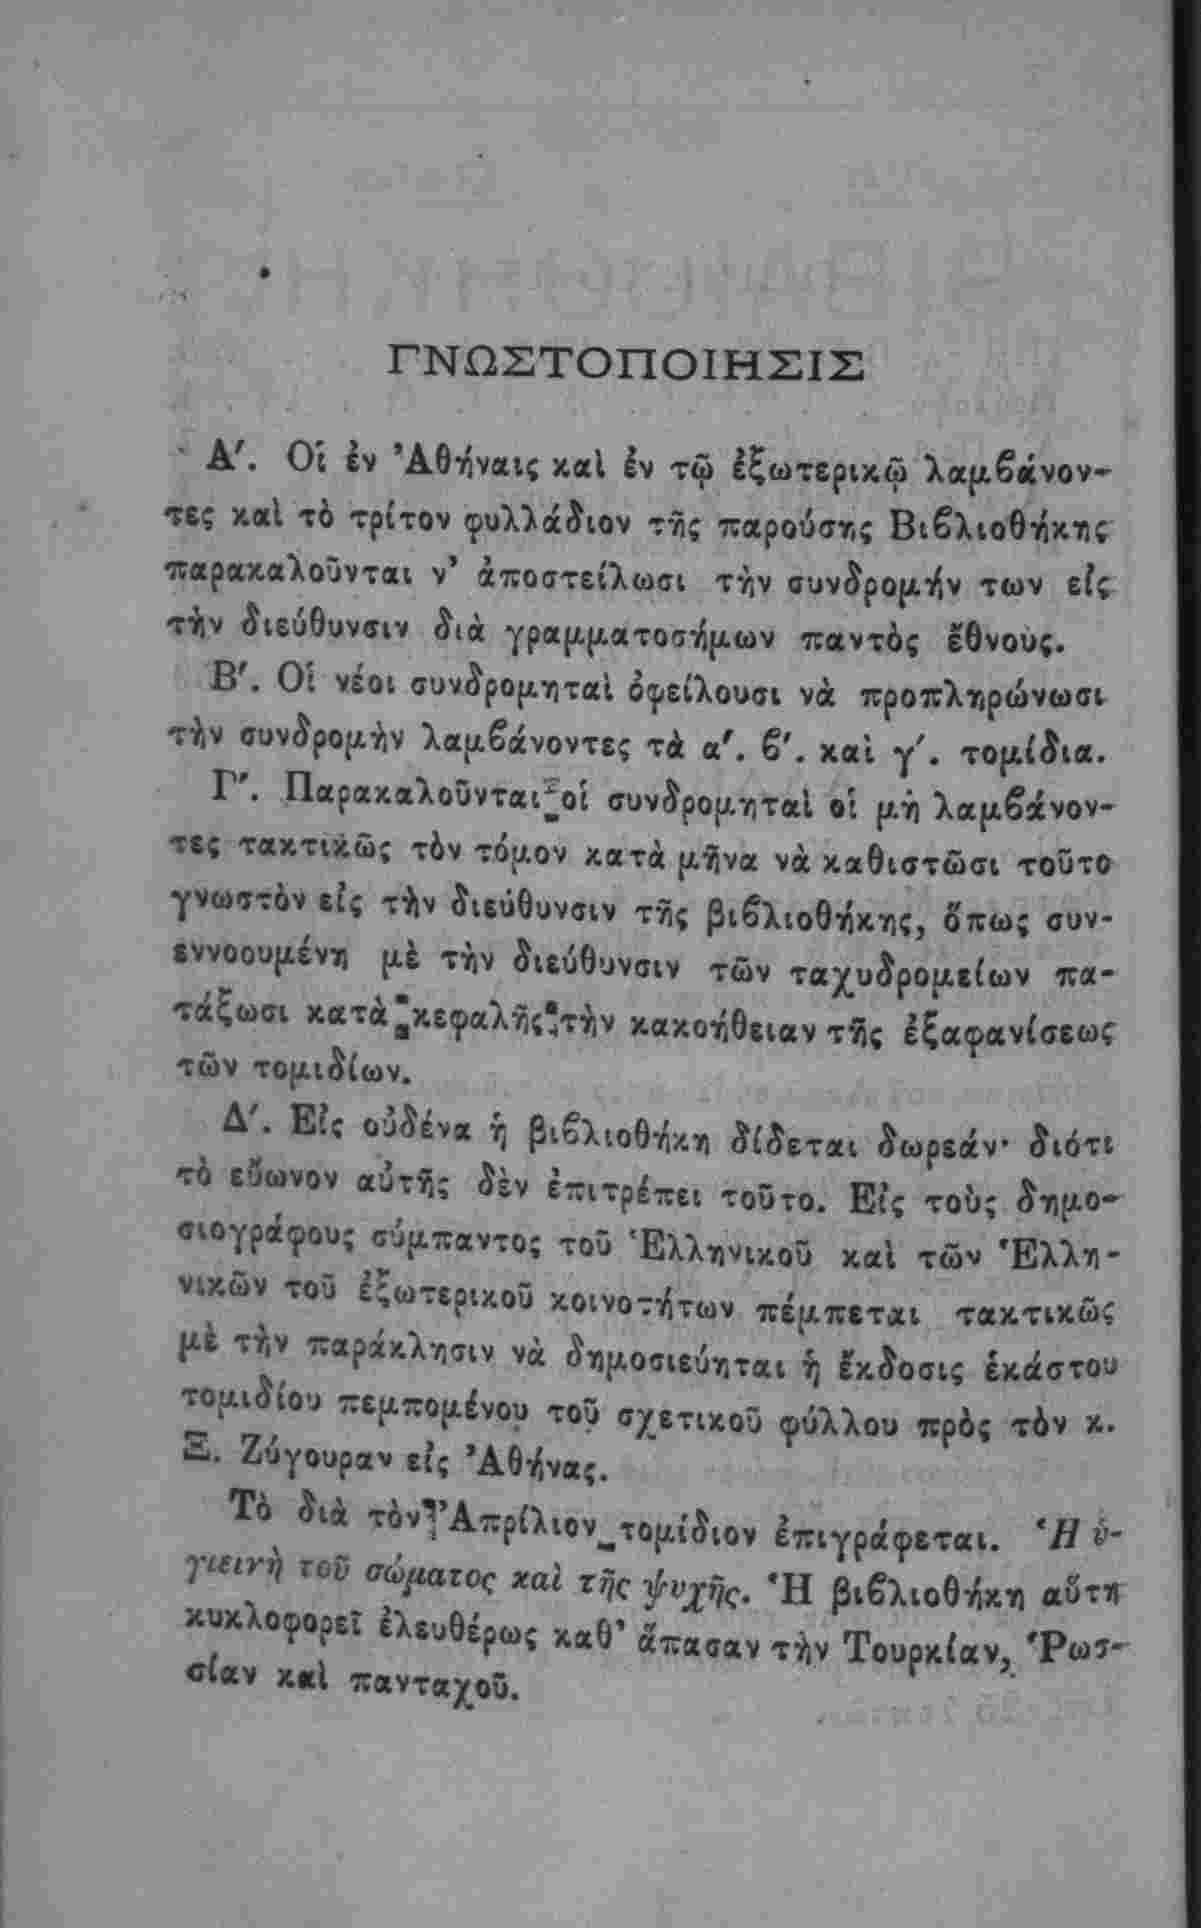 ΓΝΩΣΤΟΠΟΙΗΣΙΣ
Α′. Οἱ ἐν Ἀθήναις καὶ ἐν τῷ ἐξωτερικῷ λαμϐάνον-
τες καὶ τὸ τρίτον φυλλάδιον τῆς παρούσης Βιϐλιοθήκης
παρακαλοῦνται ν’ ἀποστείλωσι τὴν συνδρομήν των εἰς
τὴν διεύθυνσιν διὰ γραμματοσήμων παντὸς ἔθνους.
Β′. Οἱ νέοι συνδρομηταὶ ὀφείλουσι νὰ προπληρώνωσι
τὴν συνδρομὴν λαμϐάνοντες τὰ α′. ϐ′. καὶ γ′. τομίδια.
Γ′. Παρακαλοῦνται οἱ συνδρομηταὶ οἱ μὴ λαμϐάνον-
τες τακτικῶς τὸν τόμον κατὰ μῆνα νὰ καθιστῶσι τοῦτο
γνωστὸν εἰς τὴν διεύθυνσιν τῆς βιϐλιοθήκης, ὅπως συν-
εννοουμένη μὲ τὴν διεύθυνσιν τῶν ταχυδρομείων πα-
τάξωσι κατὰ κεφαλῆς τὴν κακοήθειαν τῆς ἐξαφανίσεως
τῶν τομιδίων.
Δ′. Εἰς οὐδένα ἡ βιϐλιοθήκη δίδεται δωρεάν· διότι
τὸ εὔωνον αὐτῆς δὲν ἐπιτρέπει τοῦτο. Εἰς τοὺς δημο-
σιογράφους σύμπαντος τοῦ Ἑλληνικοῦ καὶ τῶν Ἑλλη-
νικῶν τοῦ ἐξωτερικοῦ κοινοτήτων πέμπεται τακτικῶς
μὲ τὴν παράκλησιν νὰ δημοσιεύηται ἡ ἔκδοσις ἑκάστου
τομιδίου πεμπομένου τοῦ σχετικοῦ φύλλου πρὸς τὸν κ.
Ξ. Ζύγουραν εἰς Ἀθήνας.
Τὸ διὰ τὸν Ἀπρίλιον τομίδιον ἐπιγράφεται. Ἡ ὑ-
γιεινὴ τοῦ σώματος καὶ τῆς ψυχῆς. Ἡ βιϐλιοθήκη αὕτη
κυκλοφορεῖ ἐλευθέρως καθ’ ἅπασαν τὴν Τουρκίαν, Ῥωσ-
σίαν καὶ πανταχοῦ.